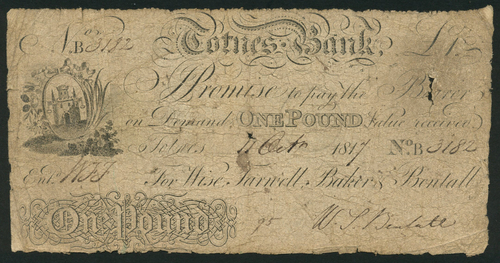 No B3182 Totnes Bank £1
I Promise to pay the Bearer
on Demand ONE POUND Value received
Totnes 11 Oct 1817 No B 3182
Entd For Wise Farwell Baker & Bentall
One Pound 95 W. S. Bentall